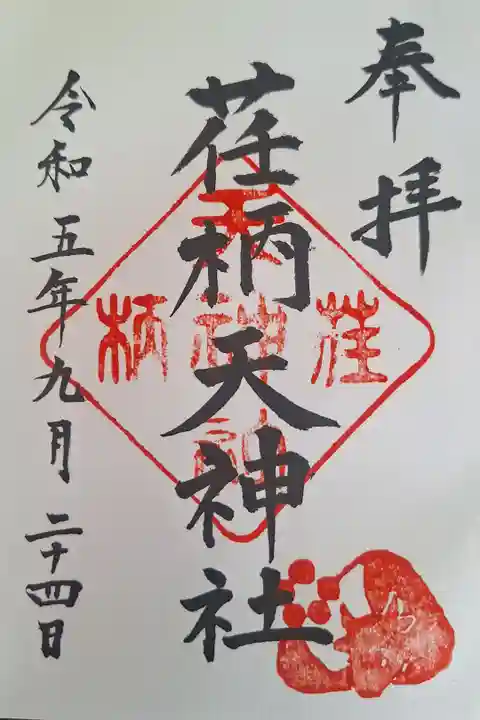 奉拝
荏柄天神社
令和五年九月二十四日
荏
柄